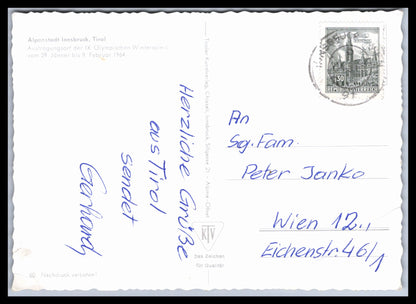 Alpenstadt Innsbruck, Tirol
Austragungsort der IX. Olympischen Winterspiele
vom 29. Jänner bis 9. Februar 1964
Herzliche Grüße
aus Tirol
sendet
Gerhard
KTV
Das Zeichen
für Qualität
Nachdruck verboten!
REPUBLIK ÖSTERREICH
An
Sg. Fam.
Peter Janko
Wien 12.,
Eichenstr. 46/1